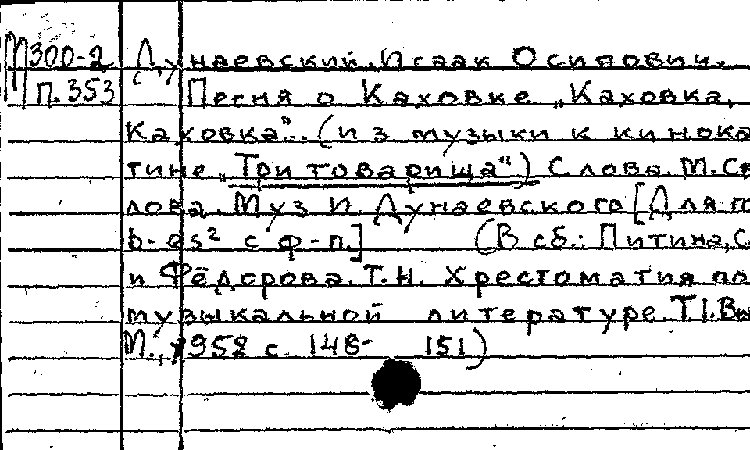 М300-2 Дунаевский. Исаак Осипович.
п.353 Песня о Каховке „Каховка,
Каховка”. (из музыки к кинока
тине „Три товарища“) Слова. М. Св
лова. Муз И. Дунаевского [Для г
b-es² с ф-п.] (В сб.: Питина, С
и Фёдорова. Т.Н. Хрестоматия по
музыкальной литературе. Т I. Вы
М., 1958 с. 148- 151)